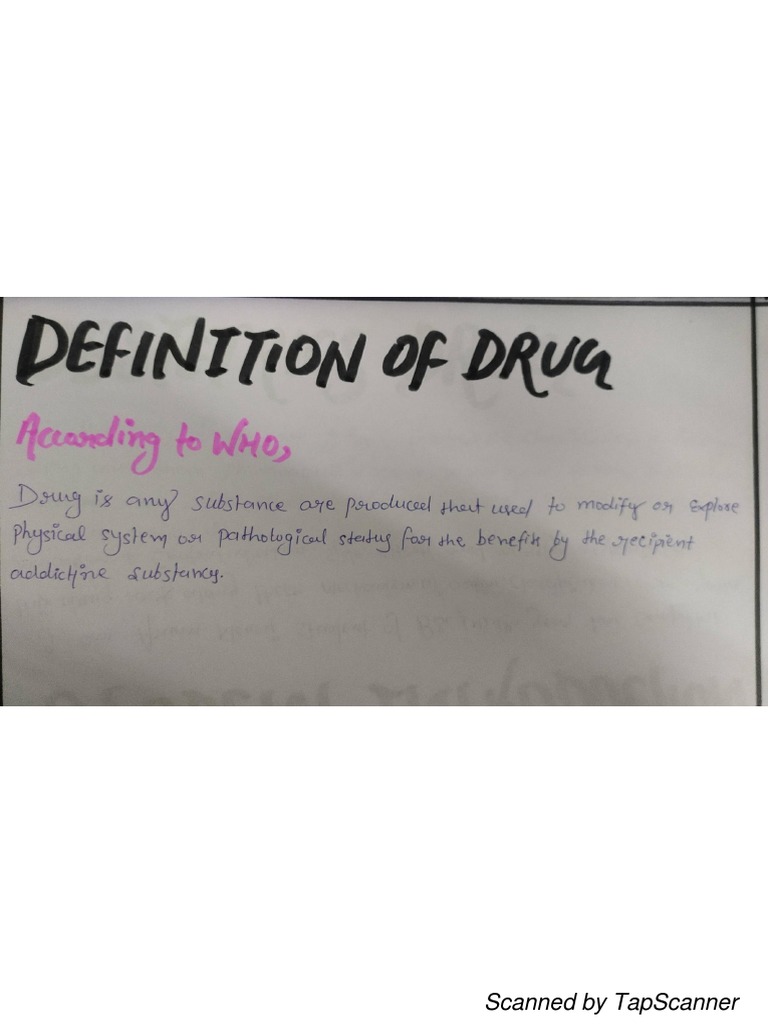 DEFINITION OF DRUG
According to WHO,
Drug is any substance are produced that used to modify or explore
physical system or pathological status for the benefit by the recipient
addictine substancy.
Scanned by TapScanner